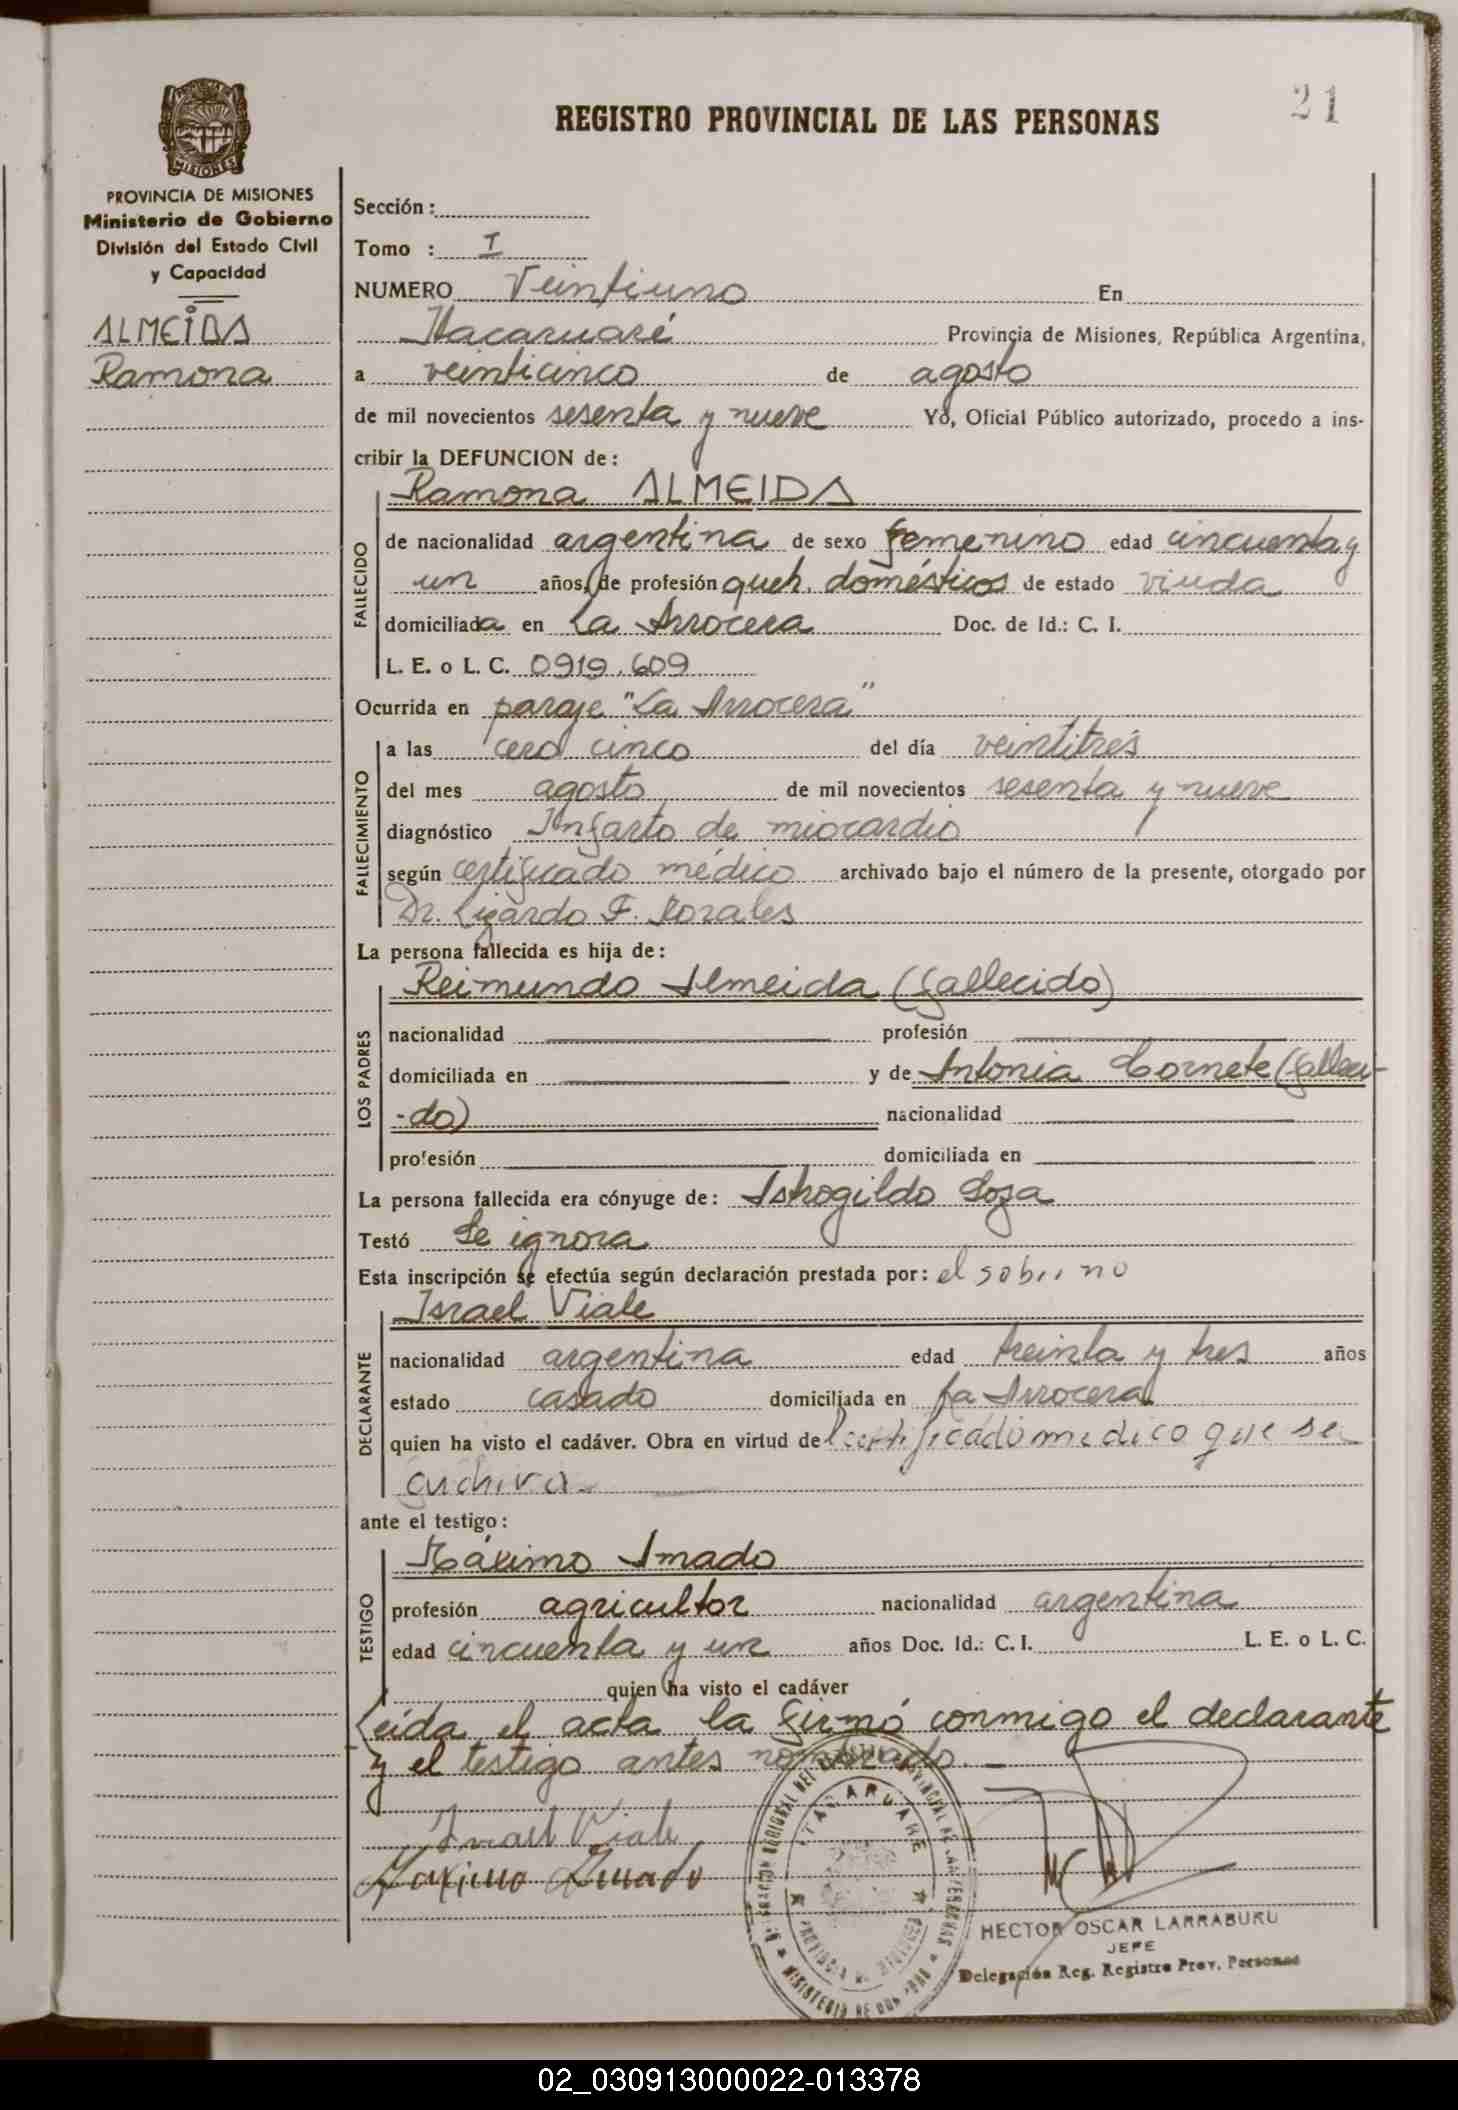 21
REGISTRO PROVINCIAL DE LAS PERSONAS
PROVINCIA DE MISIONES
PROVINCIA DE MISIONES
Ministerio de Gobierno
División del Estado Civil
y Capacidad
ALMEIDA
Ramona
Sección:
Tomo : I
NUMERO Veintiuno En
Itacaruaré Provincia de Misiones, República Argentina,
a veinticinco de agosto
de mil novecientos sesenta y nueve Yo, Oficial Público autorizado, procedo a ins-
cribir la DEFUNCION de:
Ramona ALMEIDA
FALLECIDO
de nacionalidad argentina de sexo femenino edad cincuenta y
un años, de profesión queh. domésticos de estado viuda
domiciliada en La Arrocera Doc. de Id.: C. I.
L. E. o L. C. 0919.609
Ocurrida en paraje "La Arrocera"
FALLECIMIENTO
a las cero cinco del día veintitrés
del mes agosto de mil novecientos sesenta y nueve
diagnóstico Infarto de miocardio
según certificado médico archivado bajo el número de la presente, otorgado por
Dr. Lizardo F. Morales
La persona fallecida es hija de:
Reimundo Almeida (fallecido)
LOS PADRES
nacionalidad profesión
domiciliada en y de Antonia Cornete (falleci-
-do) nacionalidad
profesión domiciliada en
La persona fallecida era cónyuge de: Sosa
Testó Se ignora
Esta inscripción se efectúa según declaración prestada por: el sobrino
Israel Viale
DECLARANTE
nacionalidad argentina edad treinta y tres años
estado casado domiciliada en La Arrocera
quien ha visto el cadáver. Obra en virtud del certificado medico que se
archiva
ante el testigo:
Máximo Amado
TESTIGO
profesión agricultor nacionalidad argentina
edad cincuenta y un años Doc. Id.: C. I. L. E. o L. C.
quien ha visto el cadáver
Leída el acta la firmó conmigo el declarante
y el testigo antes nombrado.
Israel Viale
Maximo Amado
ITACARUARE
HECTOR OSCAR LARRABURU
JEFE
Delegación Reg. Registro Prov. Personas
02_030913000022-013378